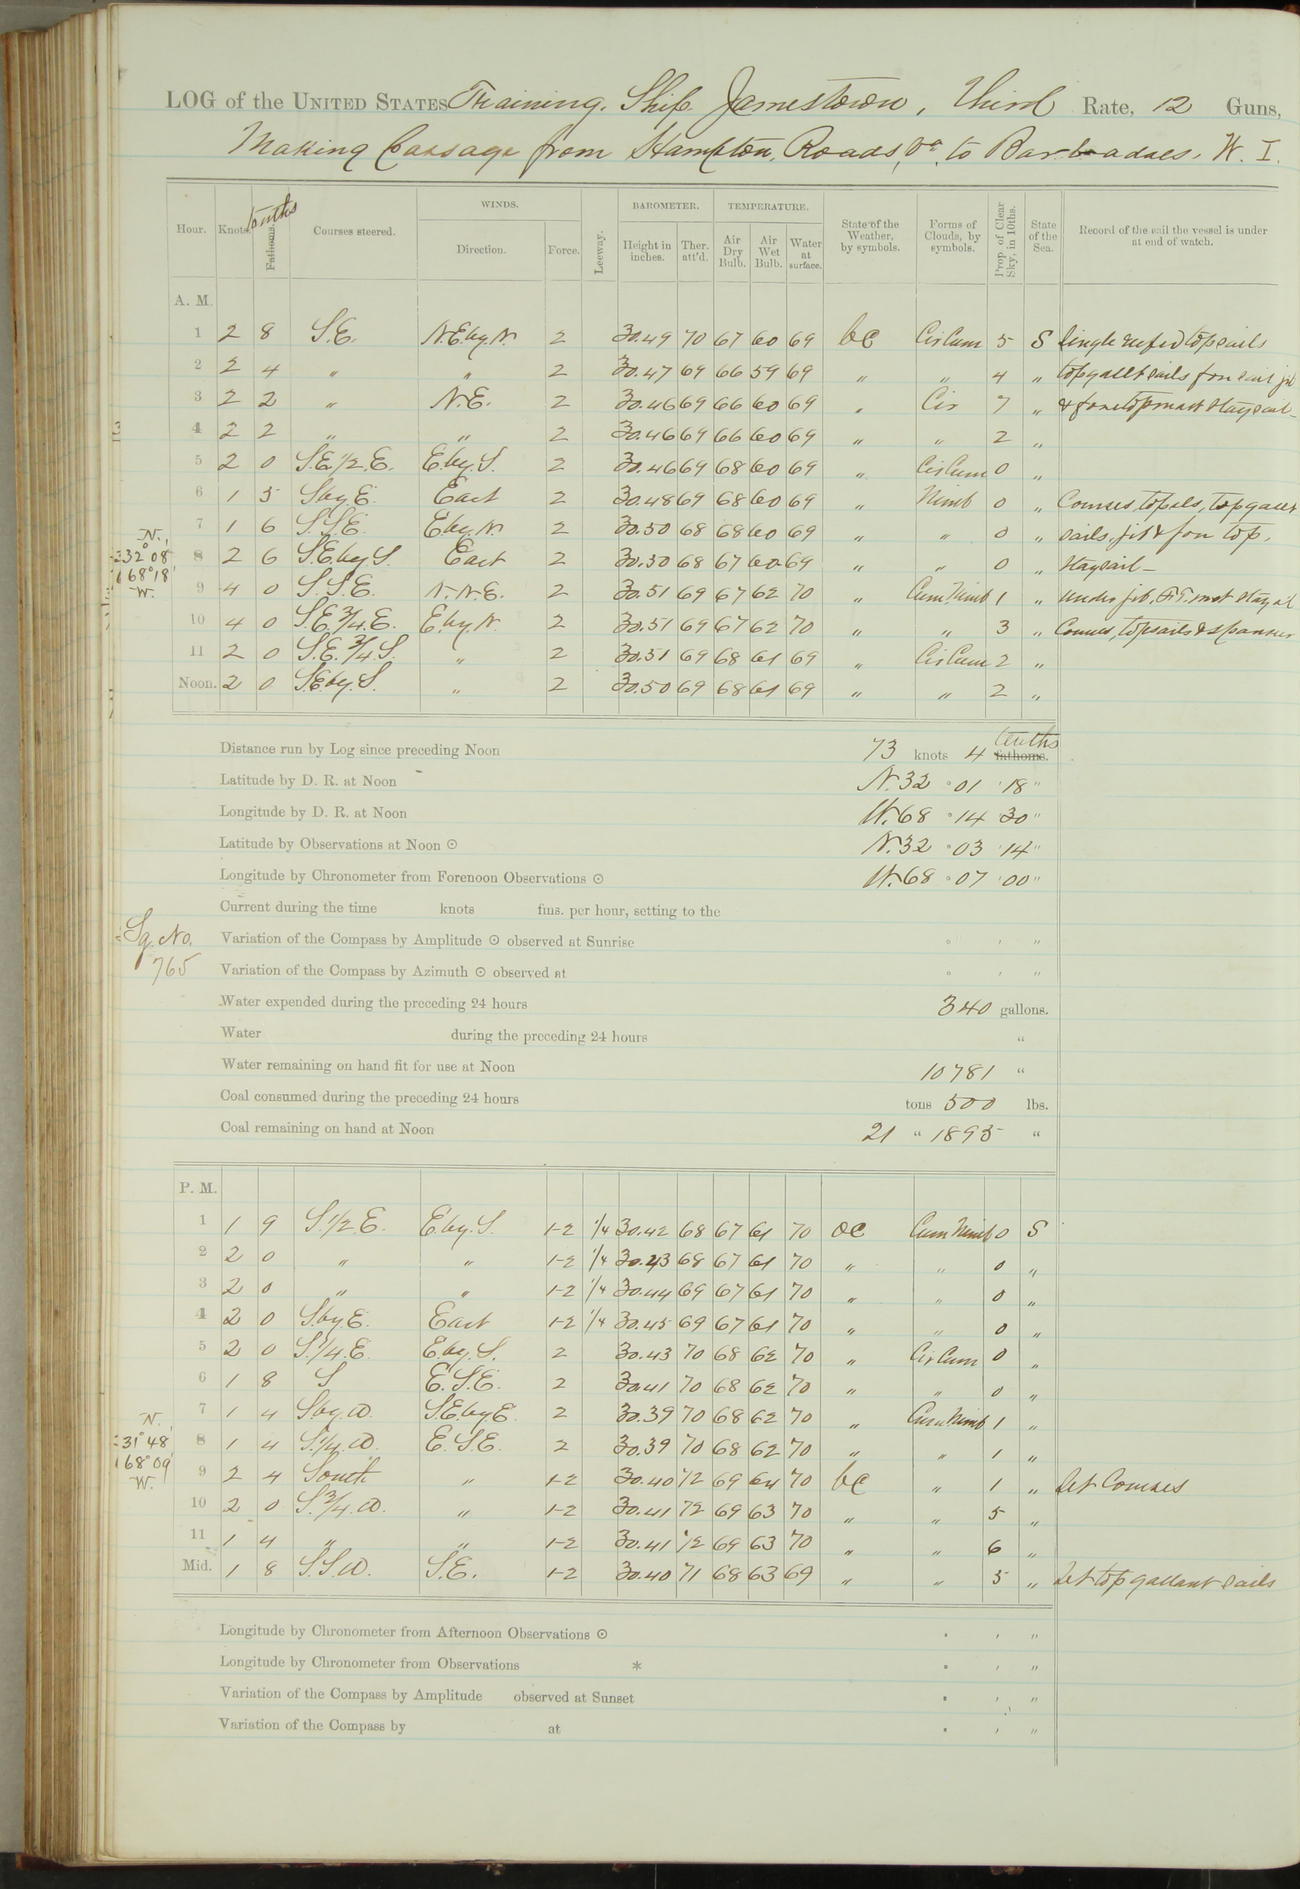 LOG of the UNITED STATES Training Ship Jamestown, Third Rate, 12 Guns,
Making Passage from Hampton Roads, Va. to Barbadoes, W. I.
Hour. Knots. tenths Fathoms. Courses steered. WINDS. Direction. Force. Leeway. BAROMETER. Height in inches. Ther. att'd. TEMPERATURE. Air Dry Bulb. Air Wet Bulb. Water at surface. State of the Weather, by symbols. Forms of Clouds, by symbols. Prop. of Clear Sky, in 10ths. State of the Sea. Record of the sail the vessel is under at end of watch.
A. M.
1 2 8 S.E. N.E.by.N. 2 30.49 70 67 60 69 bc Cir Cum 5 S Single reefed topsails
2 2 4 " " 2 30.47 69 66 59 69 " " 4 " topgallt sails fore sail jib
3 2 2 " N.E. 2 30.46 69 66 60 69 " Cir 7 " & foretopmast staysail
4 2 2 " " 2 30.46 69 66 60 69 " " 2 "
5 2 0 S.E.1/2.E. E.by.S. 2 30.46 69 68 60 69 " Cir Cum 0 "
6 1 5 S.by.E. East 2 30.48 69 68 60 69 " Nimb 0 " Courses, topsls, topgallt
7 1 6 S.S.E. E.by.N. 2 30.50 68 68 60 69 " " 0 " sails, jib & fore top.
N. 32° 08'
8 2 6 S.E.by.S. East 2 30.50 68 67 60 69 " " 0 " Staysail
68° 18' W.
9 4 0 S.S.E. N.N.E. 2 30.51 69 67 62 70 " Cum Nimb 1 " Under jib, F.T. mst stay sl
10 4 0 S.E.3/4.E. E.by.N. 2 30.51 69 67 62 70 " " 3 " Courses, topsails & spanker
11 2 0 S.E.3/4.S. " 2 30.51 69 68 61 69 " Cir Cum 2 "
Noon. 2 0 S.E.by.S. " 2 30.50 69 68 61 69 " " 2 "
Distance run by Log since preceding Noon 73 knots 4 tenths fathoms.
Latitude by D. R. at Noon N. 32 ° 01 ' 18 "
Longitude by D. R. at Noon W. 68 ° 14 ' 30 "
Latitude by Observations at Noon ⊙ N. 32 ° 03 ' 14 "
Longitude by Chronometer from Forenoon Observations ⊙ W. 68 ° 07 ' 00 "
Current during the time knots fms. per hour, setting to the
Sq. No. 765
Variation of the Compass by Amplitude ⊙ observed at Sunrise ° ' "
Variation of the Compass by Azimuth ⊙ observed at ° ' "
Water expended during the preceding 24 hours 340 gallons.
Water during the preceding 24 hours "
Water remaining on hand fit for use at Noon 10781 "
Coal consumed during the preceding 24 hours tons 500 lbs.
Coal remaining on hand at Noon 21 " 1895 "
P. M.
1 1 9 S.1/2.E. E.by.S. 1-2 1/4 30.42 68 67 61 70 oc Cum Nimb 0 S
2 2 0 " " 1-2 1/4 30.43 68 67 61 70 " " 0 "
3 2 0 " " 1-2 1/4 30.44 69 67 61 70 " " 0 "
4 2 0 S.by.E. East 1-2 1/4 30.45 69 67 61 70 " " 0 "
5 2 0 S.1/4.E. E.by.S. 2 30.43 70 68 62 70 " Cir Cum 0 "
6 1 8 S E.S.E. 2 30.41 70 68 62 70 " " 0 "
7 1 4 S.by.W. S.E.by.E. 2 30.39 70 68 62 70 " Cum Nimb 1 "
N. 31° 48'
8 1 4 S.1/4.W. E.S.E. 2 30.39 70 68 62 70 " " 1 "
68° 09' W.
9 2 4 South " 1-2 30.40 72 69 64 70 bc " 1 " Set Courses
10 2 0 S.3/4.W. " 1-2 30.41 72 69 63 70 " " 5 "
11 1 4 " " 1-2 30.41 72 69 63 70 " " 6 "
Mid. 1 8 S.S.W. S.E. 1-2 30.40 71 68 63 69 " " 5 " Set top gallant sails
Longitude by Chronometer from Afternoon Observations ⊙ ° ' "
Longitude by Chronometer from Observations * ° ' "
Variation of the Compass by Amplitude observed at Sunset ° ' "
Variation of the Compass by at ° ' "